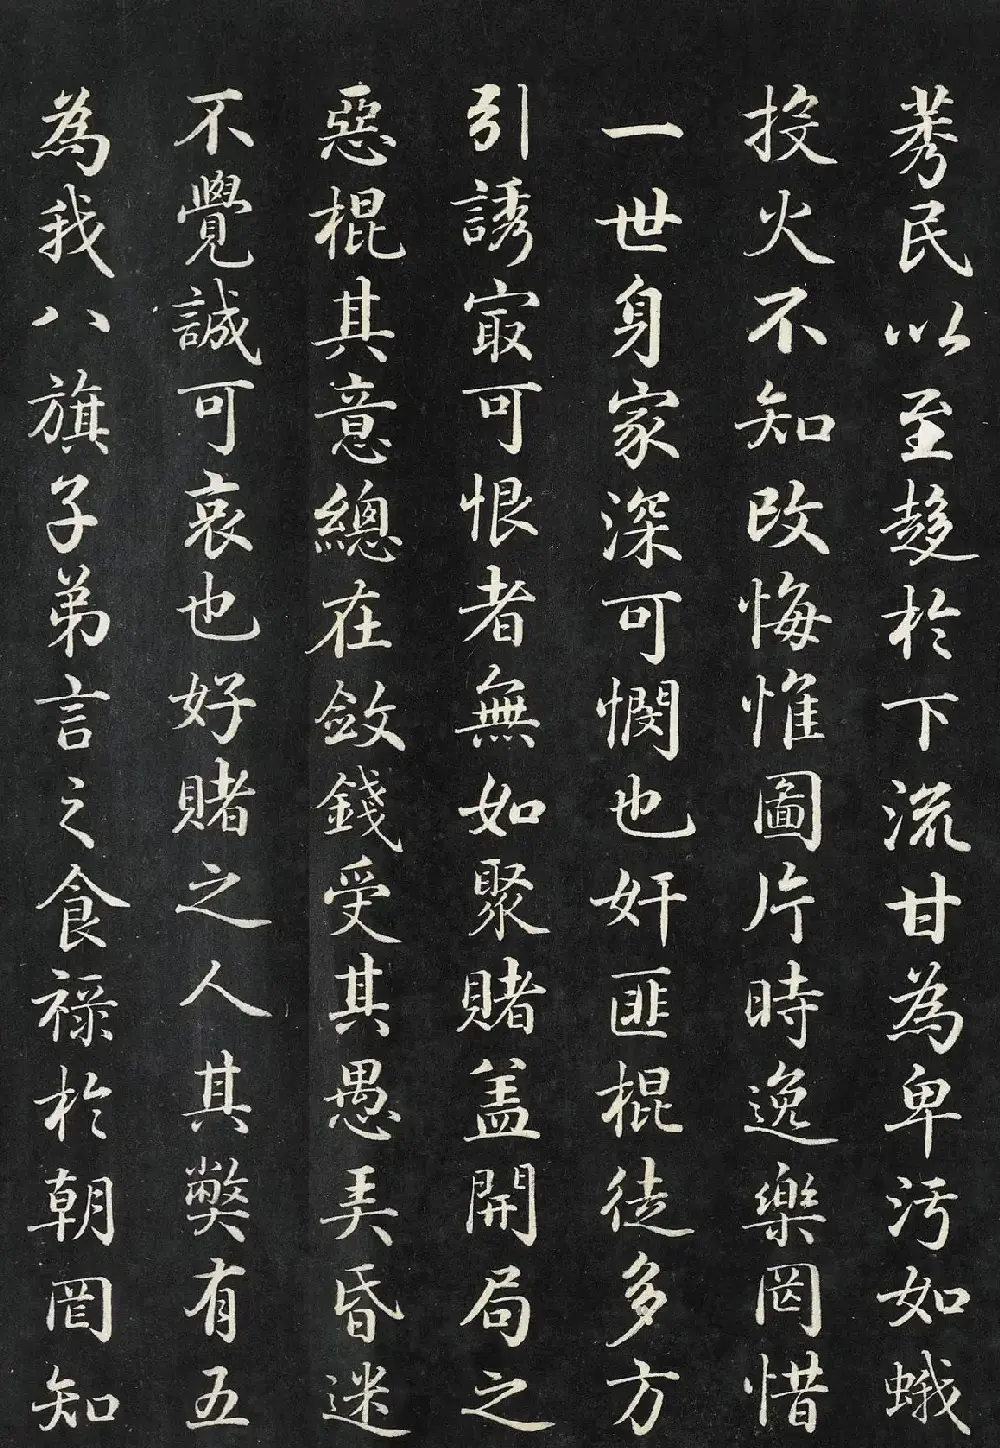 莠民以至趍於下流甘為卑污如蛾
投火不知改悔惟圖片時逸樂罔惜
一世身家深可憫也奸匪棍徒多方
引誘㝡可恨者無如聚賭盖開局之
惡棍其意總在斂錢受其愚弄昏迷
不覺誠可哀也好賭之人其獘有五
為我八旗子弟言之食祿於朝罔知